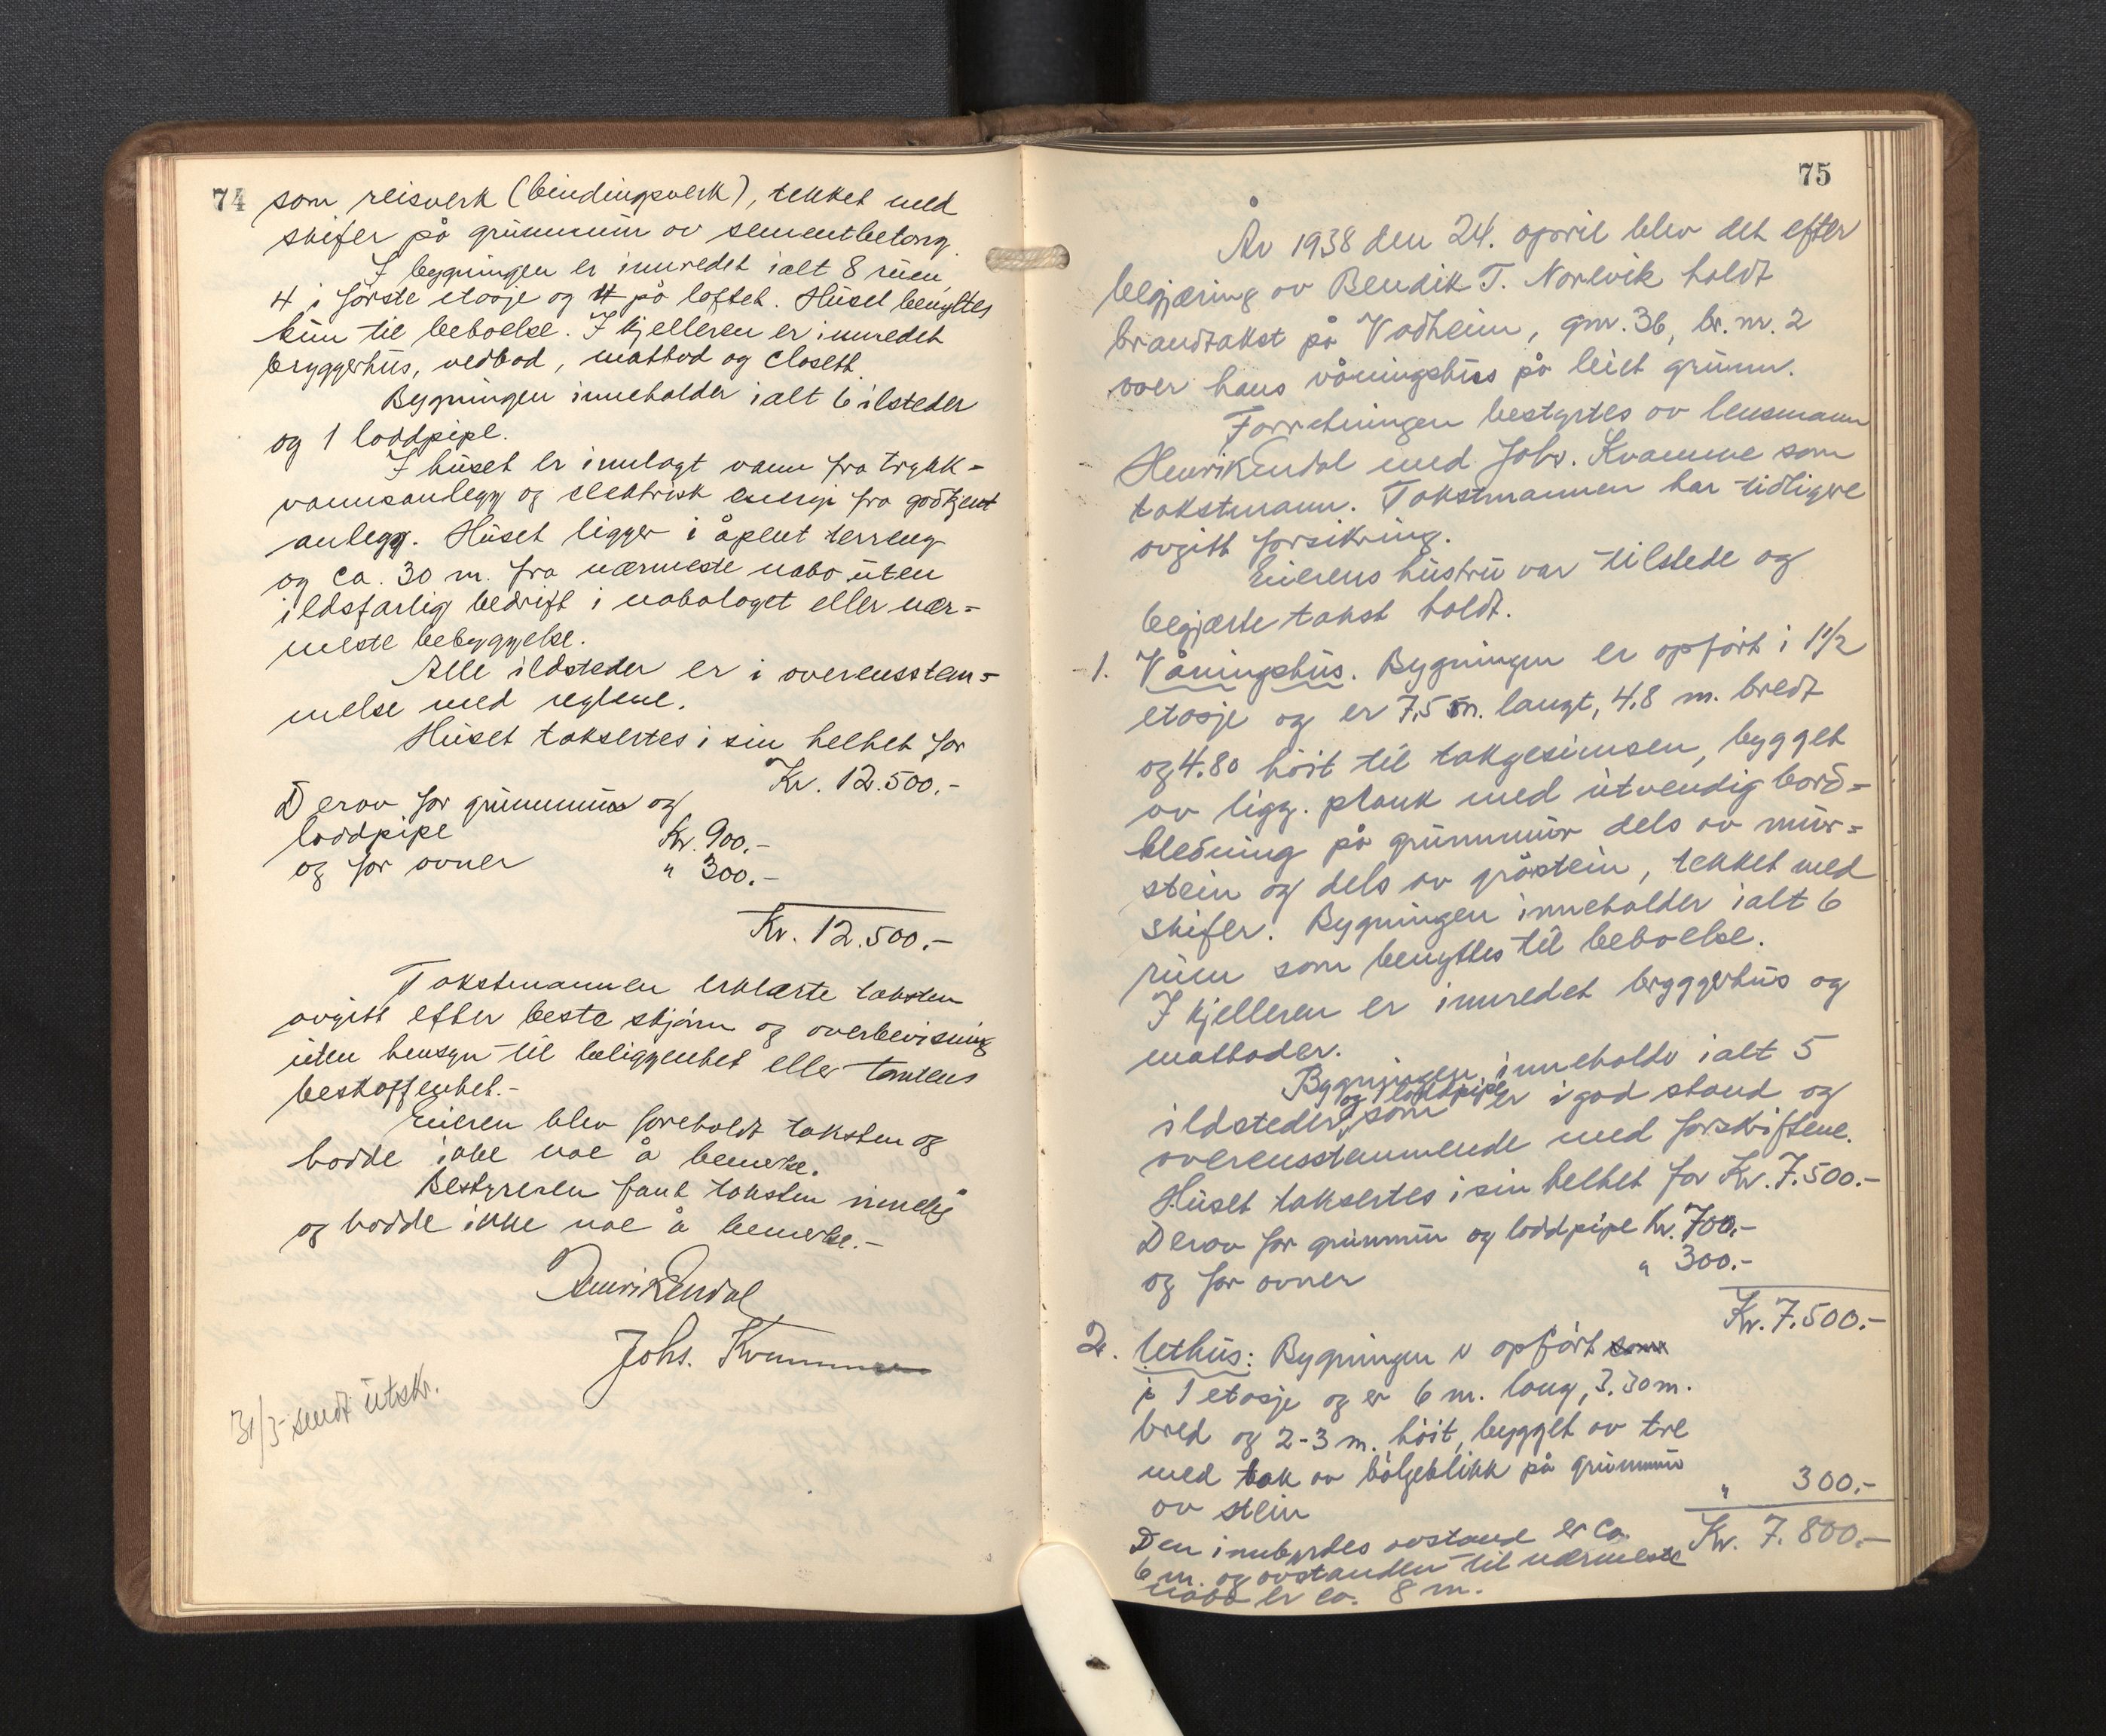 74
som reisverk (bindingsverk), tekket med
skifer på grunnmur av sementbetong.
I bygningen er innredet ialt 8 rum,
4 i første etasje og 4 på loftet. Huset benyttes
kun til beboelse. I kjelleren er innredet
bryggerhus, vedbod, matbod og closett.
Bygningen inneholder ialt 6 ilsteder
og 1 loddpipe.
I huset er innlagt vann fra trykk-
vannsanlegg og elektrisk energi fra godkjent
anlegg. Huset ligger i åpent terreng
og ca. 30 m. fra nærmeste nabo uten
ildsfarlig bedrift i nabolaget eller nær-
meste bebyggelse.
Alle ildsteder er i overensstem-
melse med reglene.
Huset taksertes i sin helhet for
Kr. 12.500.-
Derav for grunnmur og
loddpipe Kr. 900.-
og for ovner " 300.-
Kr. 12.500.-
Takstmannen erklærte taksten
avgitt efter beste skjønn og overbevisning
uten hensyn til beliggenhet eller tomtens
beskaffenhet.-
Eieren blev foreholdt taksten og
hadde ikke noe å bemerke.
Bestyreren fant taksten rimelig
og hadde ikke noe å bemerke.-
Henrik Endal
Johs. Kvamme
31/3- sendt utskr.
75
År 1938 den 24. april blev det efter
begjæring av Bendik T. Norevik holdt
brandtakst på Vadheim, gnr. 36, br. nr. 2
over hans våningshus på leiet grunn.
Forretningen bestyrtes av lensmann
Henrik Endal med Johs. Kvamme som
takstmann. Takstmannen har tidligere
avgitt forsikring.
Eierens hustru var tilstede og
begjærte takst holdt.
1. Våningshus. Bygningen er opført i 1 1/2
etasje og er 7,5 m. langt, 4.8 m. bredt
og 4.80 høit til takgesimsen, bygget
av ligg. plank med utvendig bord-
kledning på grunnmur dels av mur-
stein og dels av gråstein, tekket med
skifer. Bygningen inneholder ialt 6
rum som benyttes til beboelse.
I kjelleren er innredet bryggerhus og
matboder.
Bygningen inneholdr ialt 5
og 1 loddpipe
ildsteder, som er i god stand og
overensstemmende med forskriftene.
Huset taksertes i sin helhet for Kr. 7.500.-
Derav for grunnmur og loddpipe Kr. 700.-
og for ovner " 300.-
Kr. 7.500.-
2. Uthus: Bygningen er opført som
i 1 etasje og er 6 m. lang, 3.30 m.
bred og 2-3 m. høit, bygget av tre
med tak av bølgeblikk på grunnmur
av stein " 300.-
Den innbyrdes avstand er ca. Kr. 7.800.-
6 m. og avstanden til nærmeste
nabo er ca. 8 m.